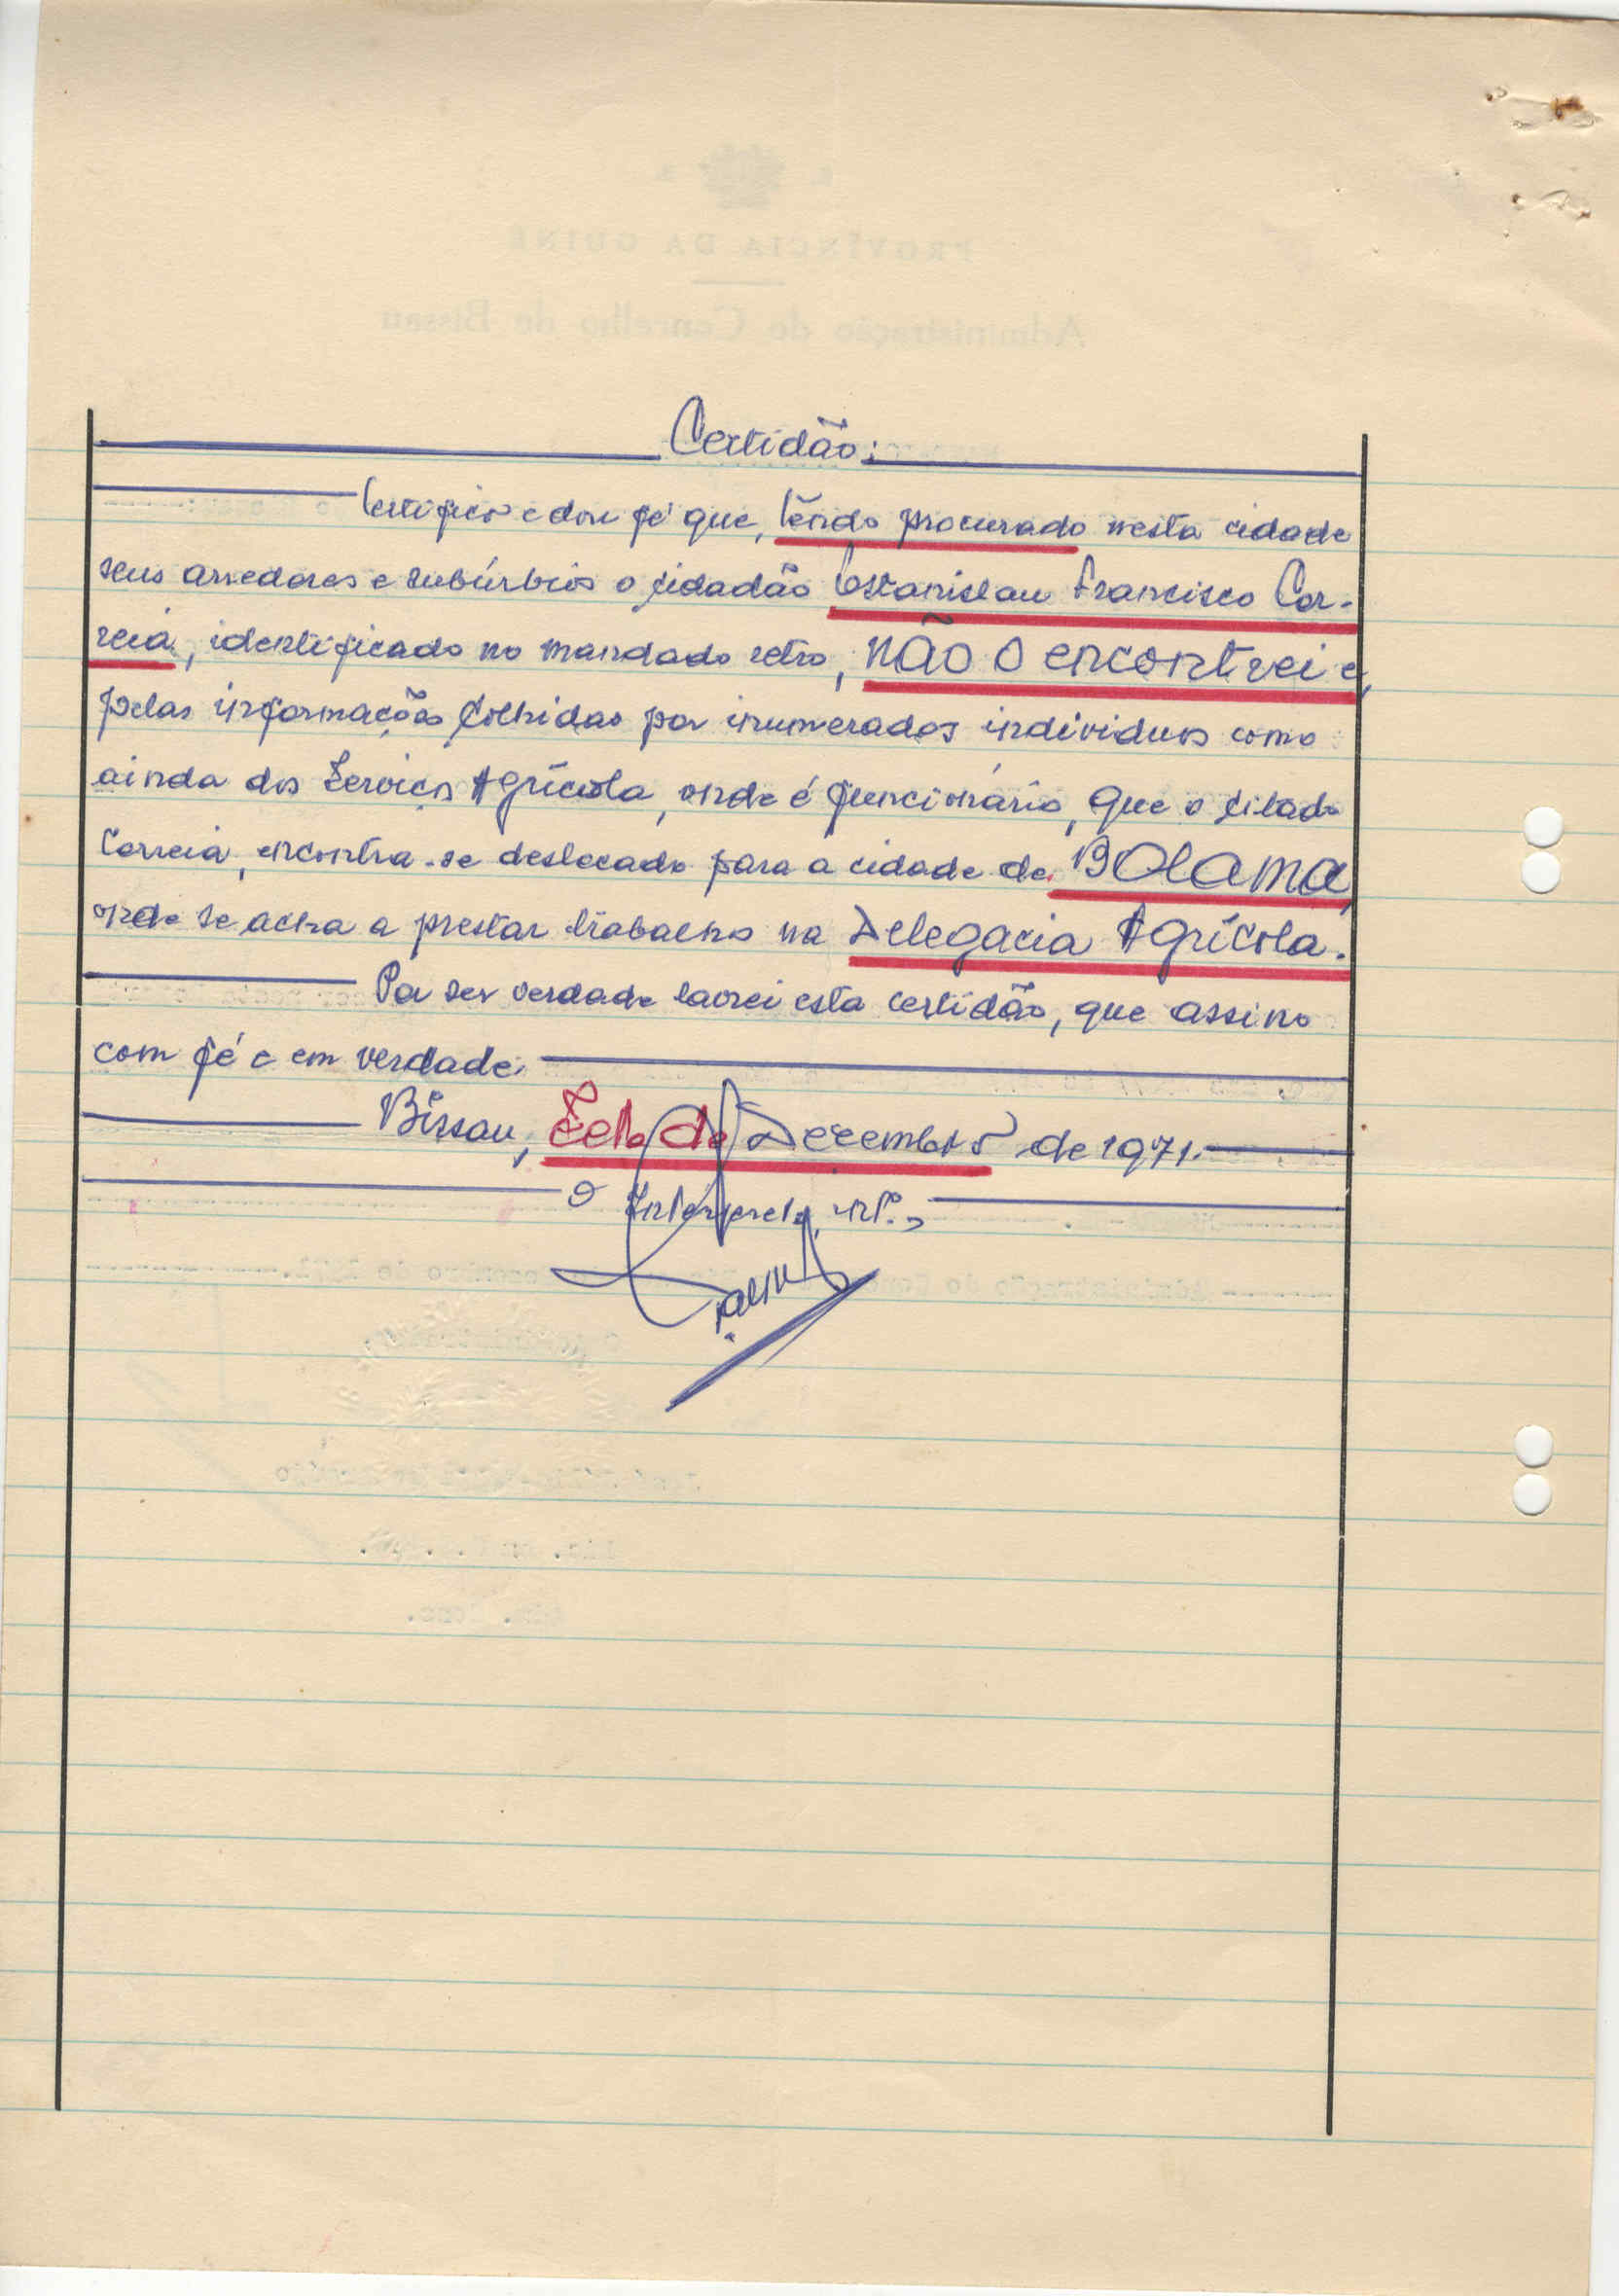 Certidão:
Certifico e dou fé que, têndo procurado nesta cidade
seus arredores e subúrbios o cidadão Estanislau Francisco Cor-
reia, identificado no mandado retro, não o encontrei e,
pelas informações colhidas por inumerados individuos como
ainda dos Serviços Agrícola, onde é funcionário, que o citado
Correia, encontra-se deslocado para a cidade de BOLAMA,
onde se acha a prestar trabalho na Delegacia Agrícola.
Por ser verdade lavrei esta certidão, que assino
com fé e em verdade.
Bissau, Sete de Dezembro de 1971.
O Intérprete, intº.,